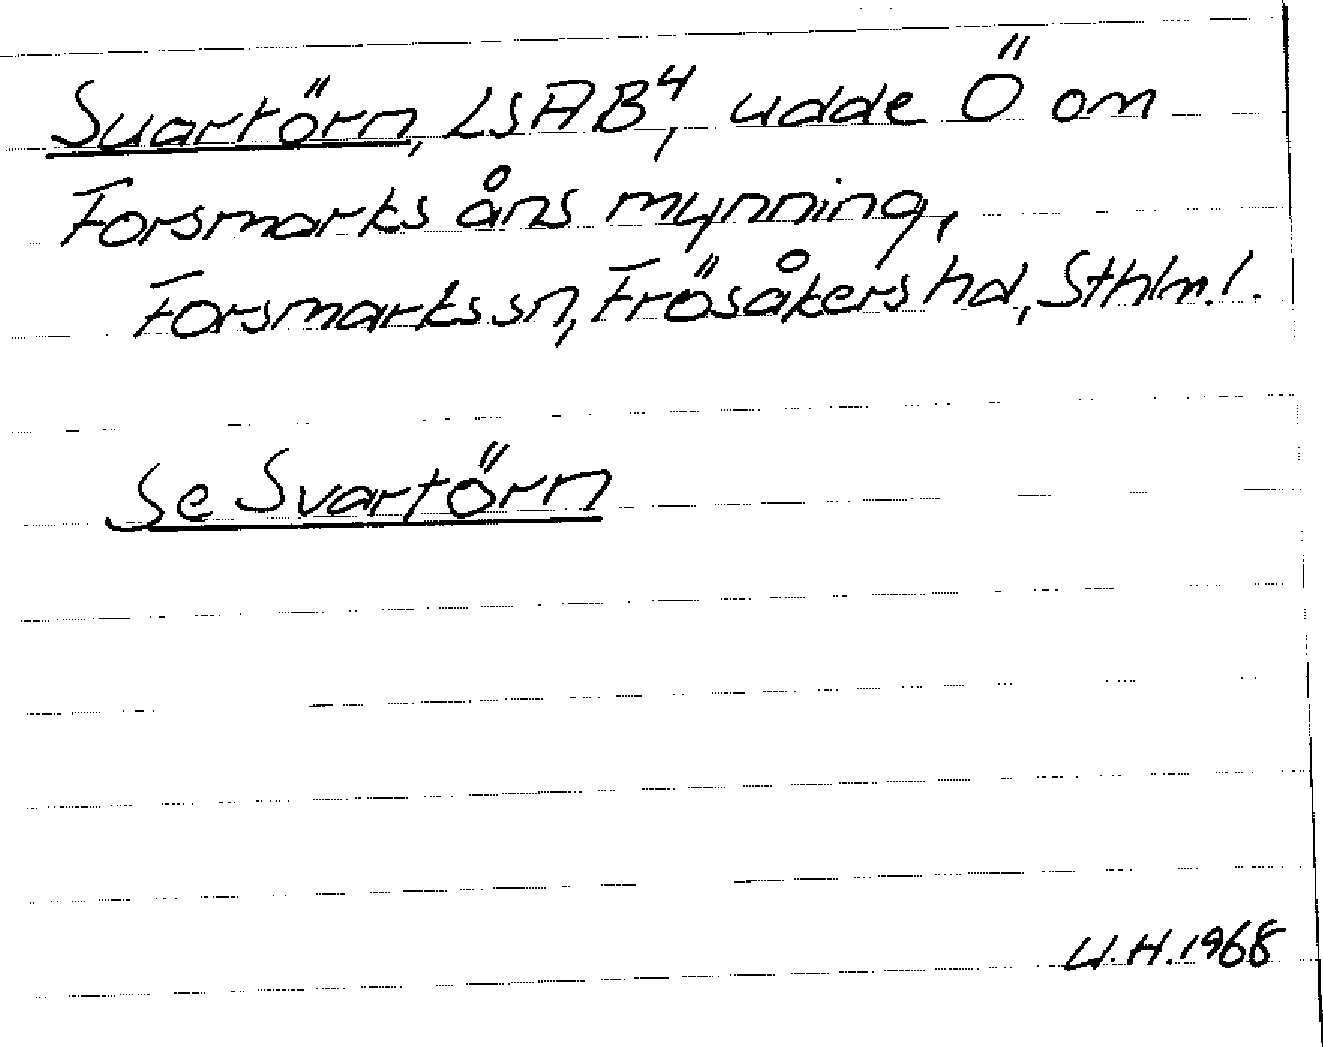 Suartörn, LSAB⁴, udde Ö om
Forsmarks åns mynning,
Forsmarks sn, Frösåkers hd, Sthlm. l.
Se Svartörn
U.H.1968